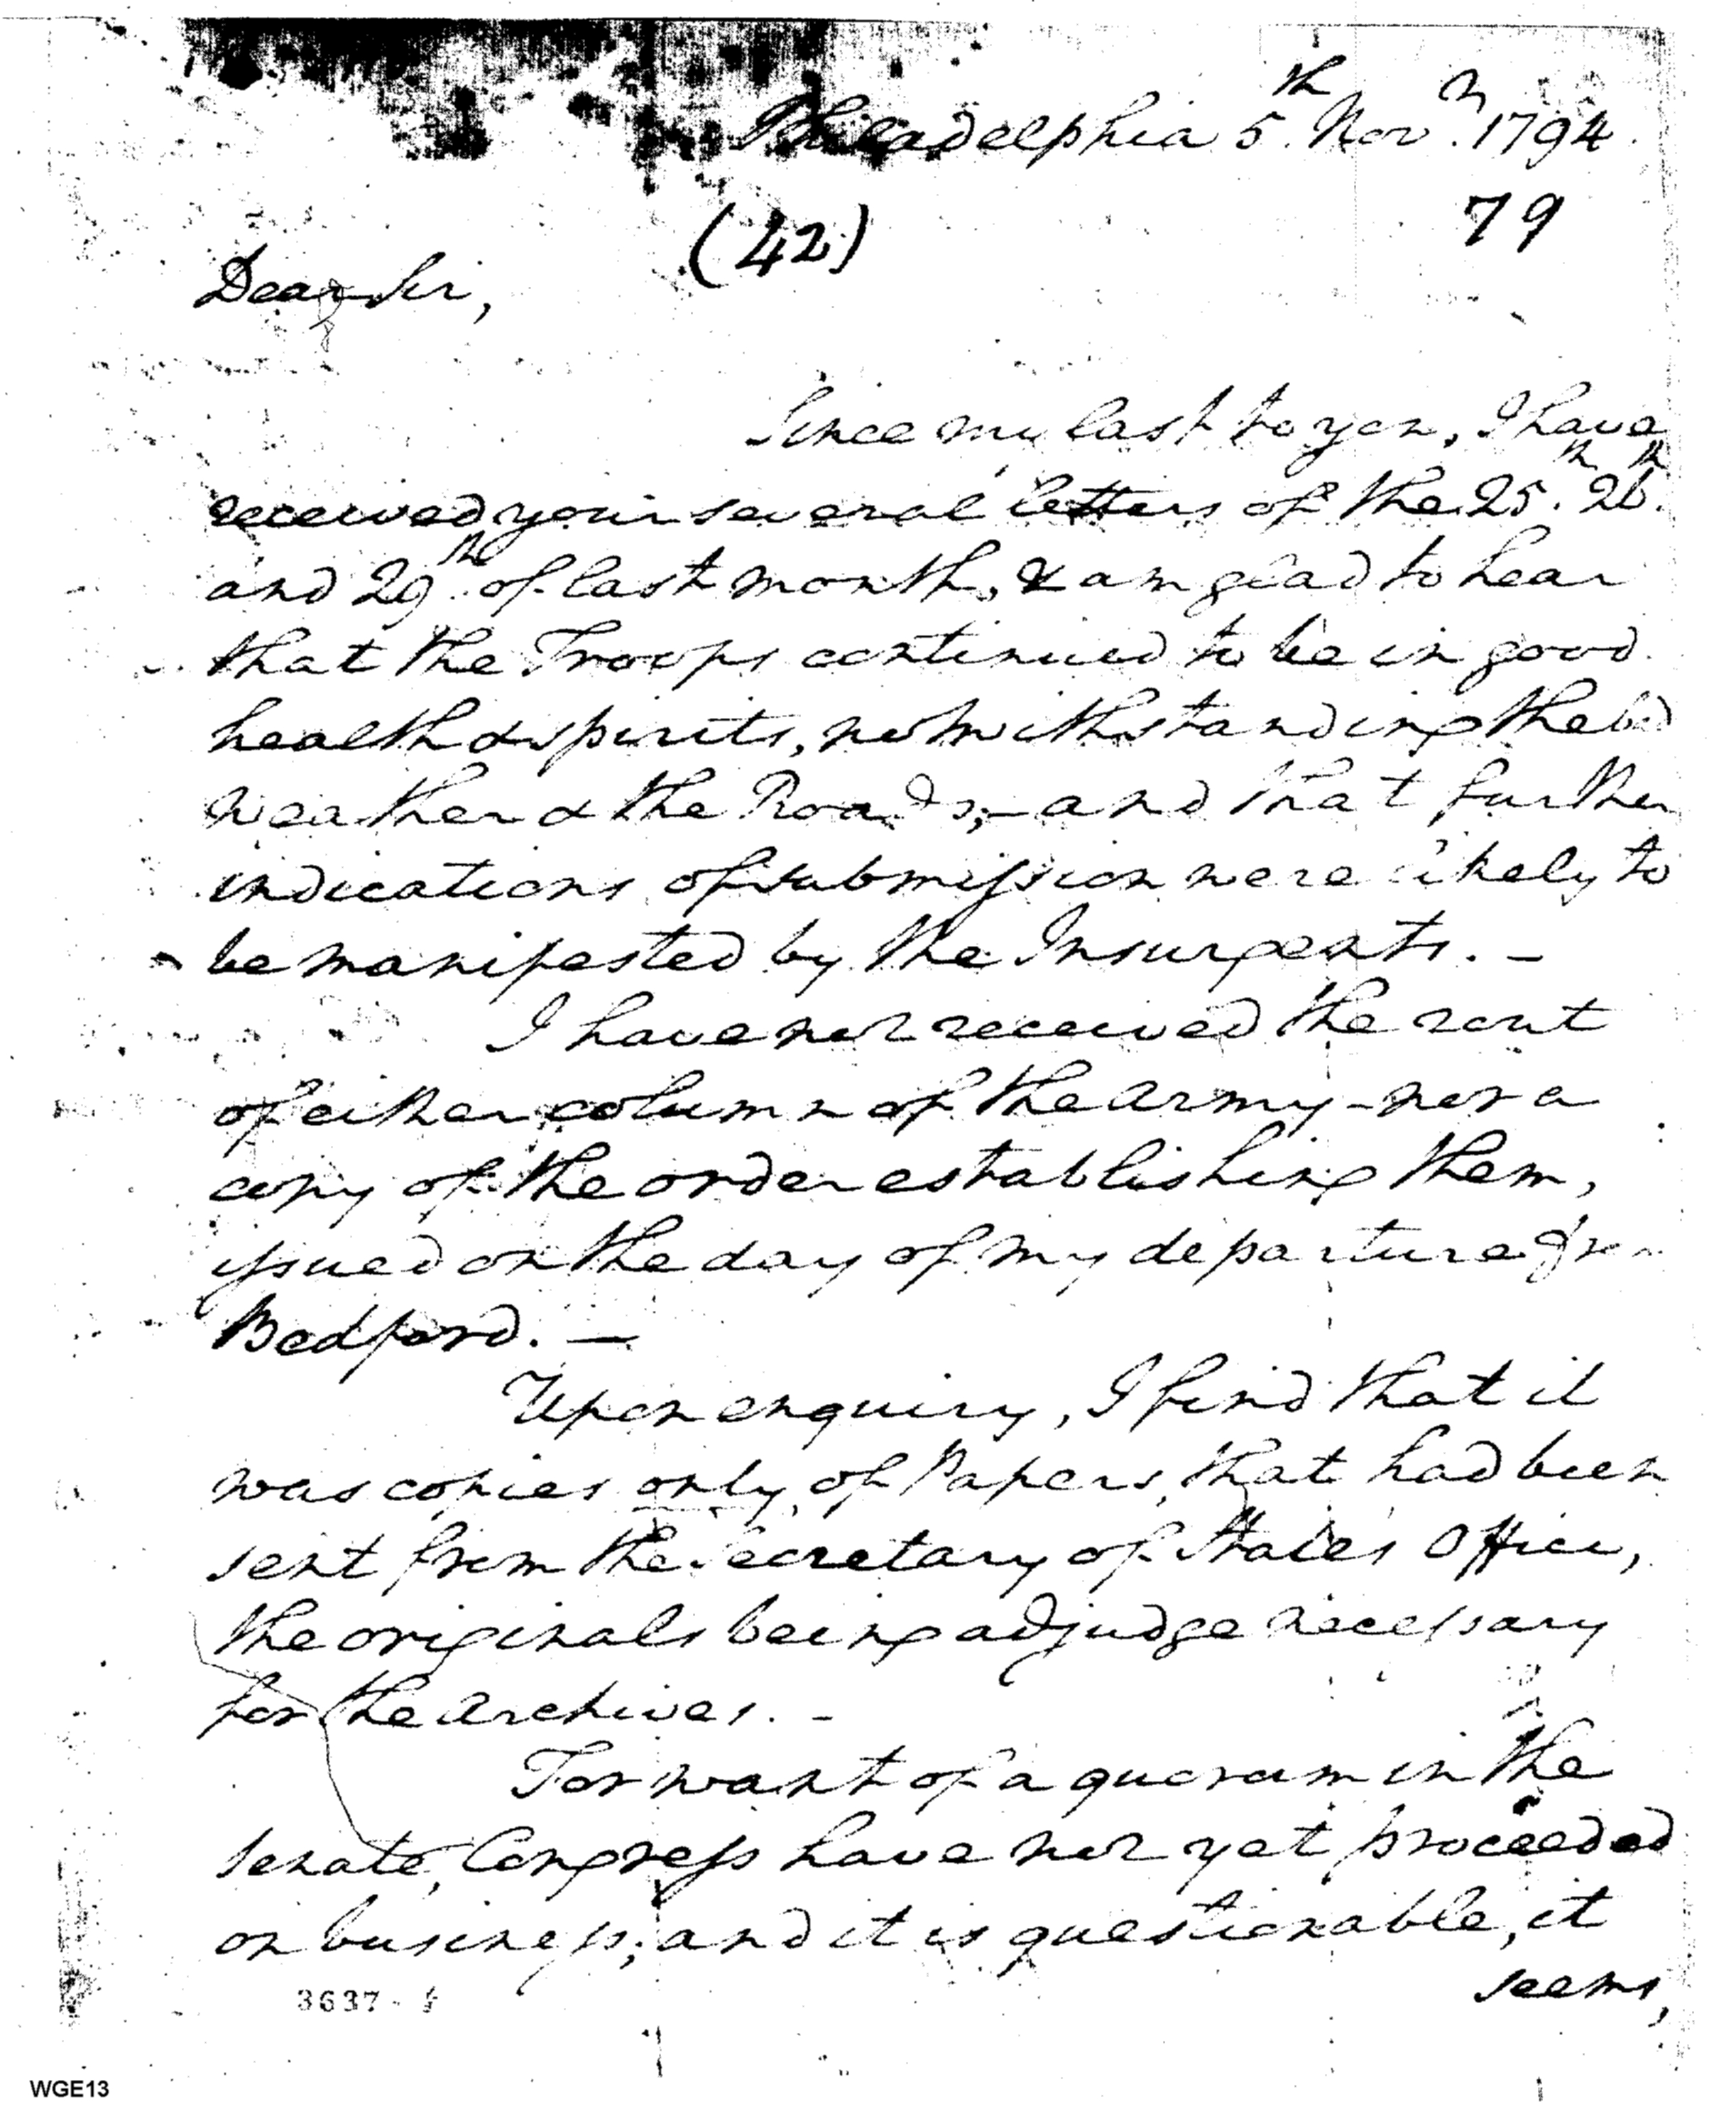 Philadelphia 5th. Novr. 1794.
79
(42)
Dear Sir,
Since my last to you, I have
received your several letters of the 25th. 26th.
and 29th. of last month, & am glad to hear
that the Troops continued to be in good
health & spirits, notwithstanding the bad
weather & the Roads;—and that further
indications of submission were likely to
be manifested by the Insurgents.—
I have not received the rout
of either column of the army—nor a
copy of the order establishing them,
issued on the day of my departure from
Bedford.—
Upon enquiry, I find that it
was copies only, of Papers, that had been
sent from the Secretary of State's Office,
the originals being adjudge necessary
for the archives.—
For want of a quorum in the
Senate, Congress have not yet proceeded
on business; and it is questionable, it
seems,
3637
WGE13